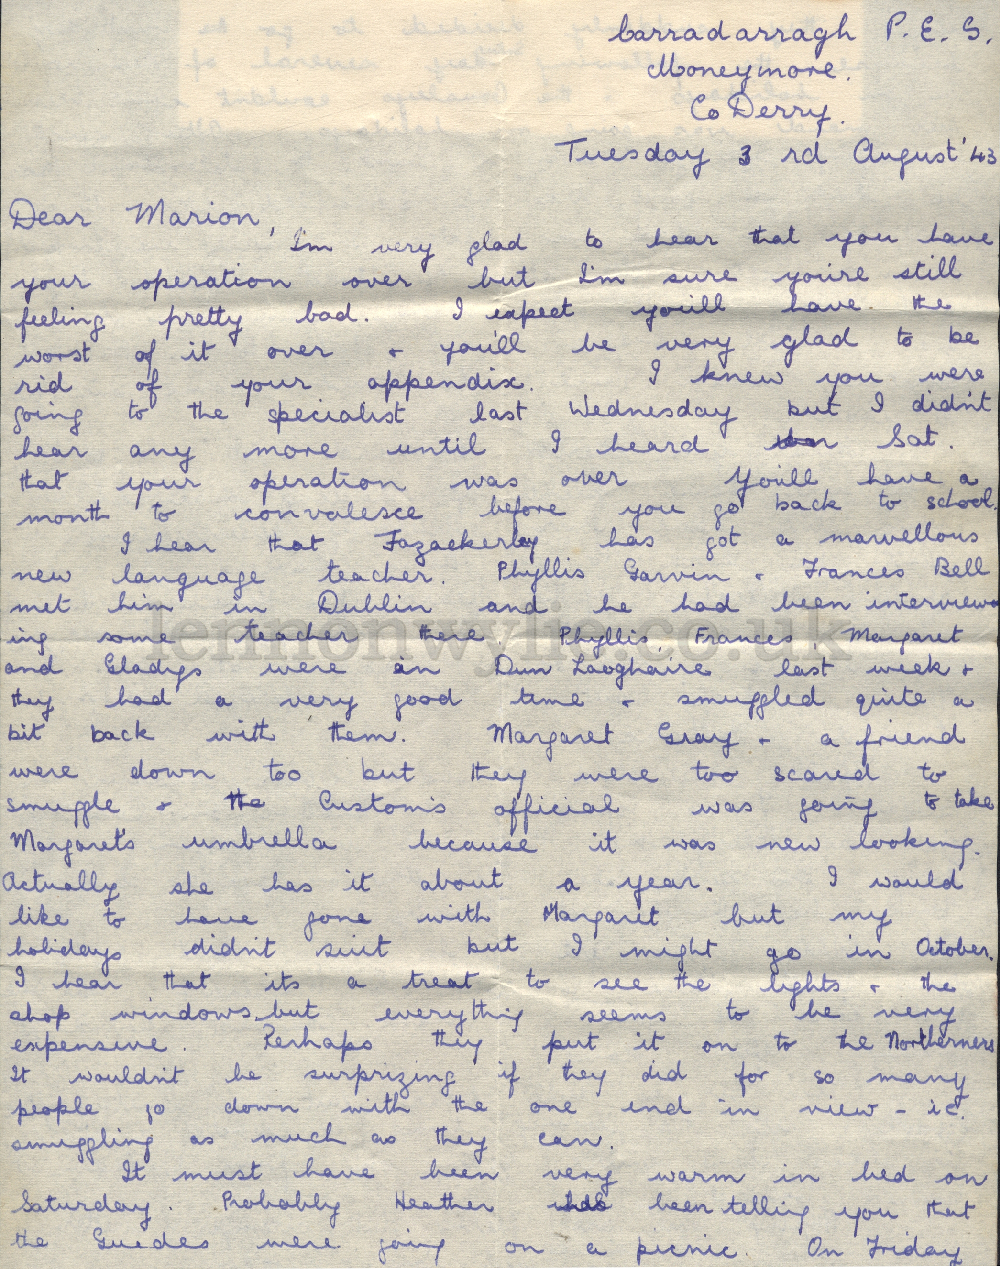 Carradarragh P. E. S.
Moneymore.
Co Derry.
Tuesday 3 rd August '43
Dear Marion,
I'm very glad to hear that you have
your operation over but I'm sure you're still
feeling pretty bad. I expect you'll have the
worst of it over & you'll be very glad to be
rid of your appendix. I knew you were
going to the specialist last Wednesday but I didn't
hear any more until I heard Sat.
that your operation was over You'll have a
month to convalesce before you go back to school.
I hear that Fazackerley has got a marvellous
new language teacher. Phyllis Garvin & Frances Bell
met him in Dublin and he had been interview
ing some teacher there. Phyllis Frances Margaret
and Gladys were in Dun Laoghaire last week &
they had a very good time & smuggled quite a
bit back with them. Margaret Gray & a friend
were down too but they were too scared to
smuggle & the Customs official was going to take
Margaret's umbrella because it was new looking.
Actually she has it about a year. I would
like to have gone with Margaret but my
holidays didn't suit but I might go in October.
I hear that its a treat to see the lights & the
shop windows, but everything seems to be very
expensive. Perhaps they put it on to the Northerners
It wouldn't be surprizing if they did for so many
people go down with the one end in view - ie.
smuggling as much as they can.
It must have been very warm in bed on
Saturday. Probably Heather has been telling you that
the Guides were going on a picnic. On Friday
lennonwylie.co.uk